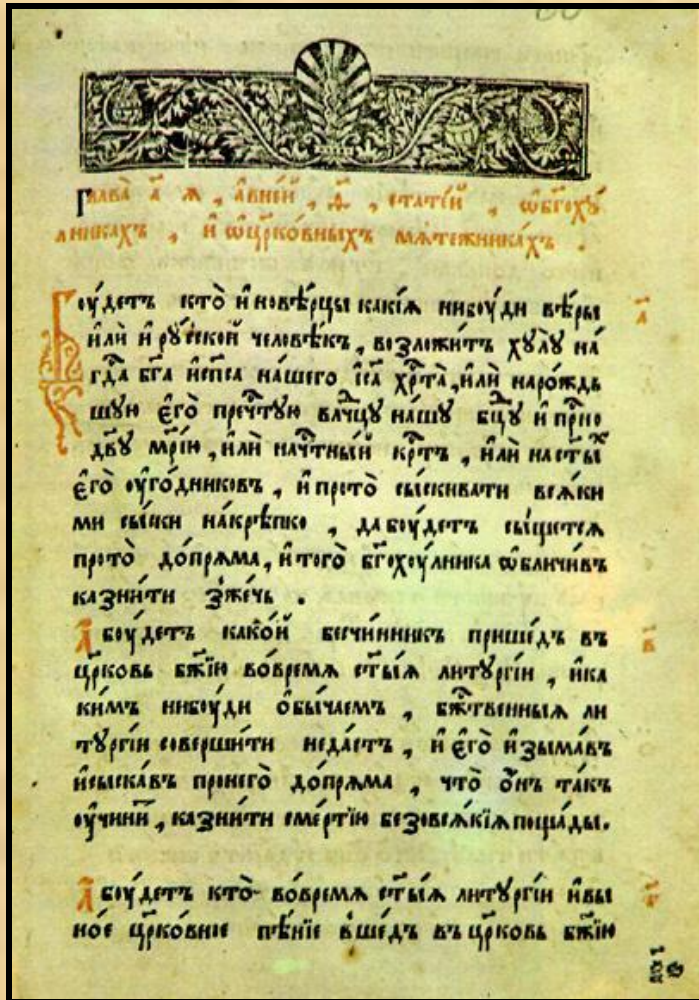 Глава̀ а҃ ꙗ , а҆вне́й , ѳ҃ , статі́й , ѡ҆бг҃оху́
лникахъ , и҆ ѡ҆цр҃ко́вныхъ мѧте́жникахъ .
Боу́детъ кто̀ и҆нове́рцы какі́ѧ нибоу́ди вѣ́ры
и҆лѝ и҆ ру́сской человѣ́къ , возложи́тъ хулу̀ на́
гд҃а бг҃а и҆сп҃са на́шего іс҃а хрⷭ҇та̀ , и҆лѝ наро́ждь
шую є҆го̀ пречⷭ҇тую влⷣчцу на́шу бцⷣу и҆ прⷭ҇но
дв҃у мр҃і́ю , и҆лѝ начⷭ҇тны́й крⷭ҇тъ , и҆лѝ на ст҃ы́хъ
є҆го̀ оу҆го́дниковъ , и҆ прото̀ сы́скивати всѧ́ки
ми сы́ски на́крѣпко , да боу́детъ сы́щетсѧ
прото̀ до́прѧма , и҆ того̀ бг҃охоу́лника ѡ҆бличи́въ
казни́ти зже́чь .
А҆ боу́детъ како́й бесчи́нникъ прише́дъ въ
цр҃ковь бж҃їю во́времѧ ст҃ы́ѧ литургі́и , и҆ка
ки́мъ нибоу́ди о҆бы́чаемъ , бжⷭ҇твенныѧ ли
тургі́и соверши́ти неда́стъ , и҆ є҆го̀ и҆зыма́въ
и҆сыска́въ пронего̀ до́прѧма , что̀ о҆́нъ та́къ
оу҆чини́т , казни́ти сме́ртїю безовсѧ́кїѧ поща́ды .
А҆ боу́детъ кто̀ во́времѧ ст҃ы́ѧ литургі́и и҆вы
но́е цр҃ко́вное пѣ́нїе вше́дъ въ цр҃ковь бж҃їю
а҃
в҃